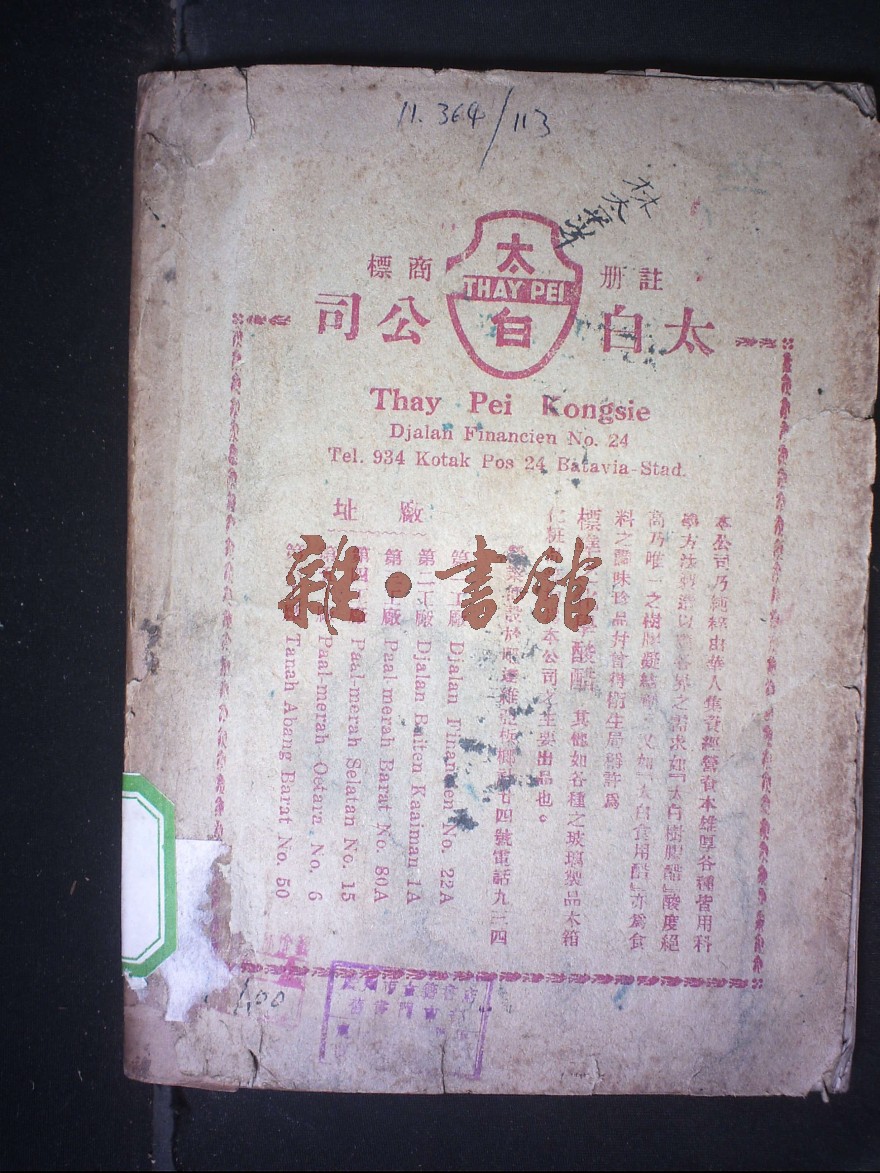 11. 364/113
林太
註册 商標
太白 公司
太
THAY PEI
白
Thay Pei Kongsie
Djalan Financien No. 24
Tel. 934 Kotak Pos 24 Batavia-Stad.
本公司乃純粹由華人集資經營資本雄厚各種皆用科
學方法製造以應各界之需求如『太白樹膠醋』酸度絕
高乃唯一之樹膠凝結劑 又如『太白食用醋』亦爲食
料之調味珍品幷曾得衛生局 許爲
標準 酸醋 其他如各種之玻璃製品木箱
化粧 本公司之主要出品也。
號電話九三四
廠址
第 工廠 Djalan Financien No. 22A
第二工廠 Djalan Buiten Kaaiman 1A
第 工廠 Paal-merah Barat No. 80A
第四 廠 Paal-merah Selatan No. 15
第 Paal-merah Oetara No. 6
第 Tanah Abang Barat No. 50
雜·書館
1.00